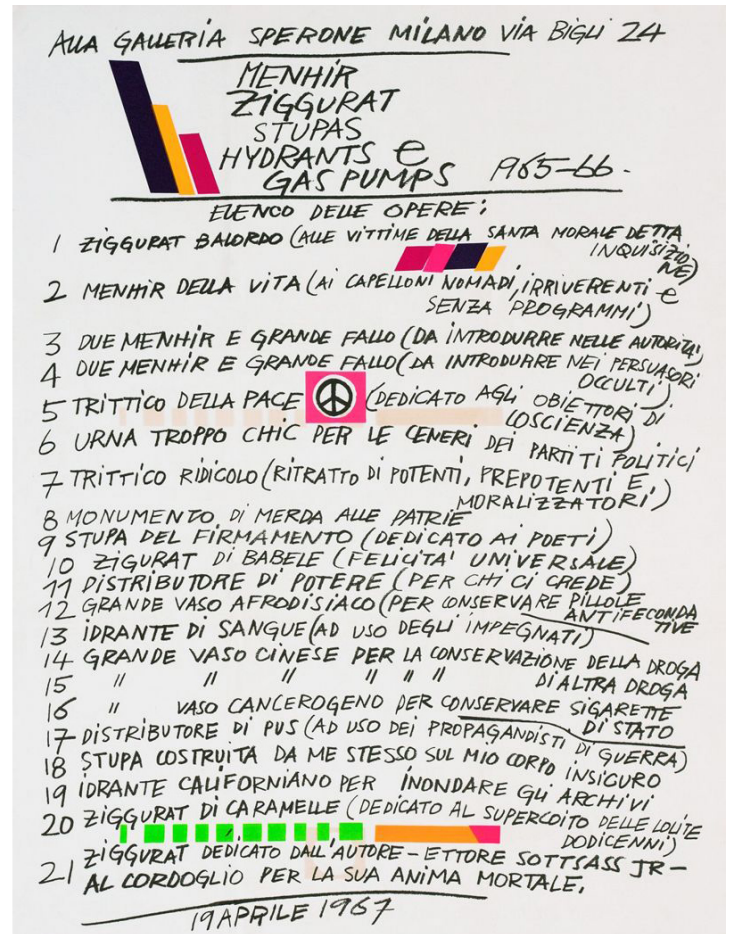 ALLA GALLERIA SPERONE MILANO VIA BIGLI 24
MENHIR
ZIGGURAT
STUPAS
HYDRANTS e
GAS PUMPS 1965-66.
ELENCO DELLE OPERE:
1 ZIGGURAT BALORDO (ALLE VITTIME DELLA SANTA MORALE DETTA
INQUISIZIO
NE)
2 MENHIR DELLA VITA (AI CAPELLONI NOMADI, IRRIVERENTI e
SENZA PROGRAMMI)
3 DUE MENHIR E GRANDE FALLO (DA INTRODURRE NELLE AUTORITÀ)
4 DUE MENHIR E GRANDE FALLO (DA INTRODURRE NEI PERSUASORI
OCCULTI)
5 TRITTICO DELLA PACE (DEDICATO AGLI OBIETTORI DI
COSCIENZA)
6 URNA TROPPO CHIC PER LE CENERI DEI PARTITI POLITICI
7 TRITTICO RIDICOLO (RITRATTO DI POTENTI, PREPOTENTI E
MORALIZZATORI)
8 MONUMENTO DI MERDA ALLE PATRIE
9 STUPA DEL FIRMAMENTO (DEDICATO AI POETI)
10 ZIGURAT DI BABELE (FELICITA' UNIVERSALE)
11 DISTRIBUTORE DI POTERE (PER CHI CI CREDE)
12 GRANDE VASO AFRODISIACO (PER CONSERVARE PILLOLE
ANTIFECONDA
TIVE
13 IDRANTE DI SANGUE (AD USO DEGLI IMPEGNATI)
14 GRANDE VASO CINESE PER LA CONSERVAZIONE DELLA DROGA
15 " " " " " " DI ALTRA DROGA
16 " VASO CANCEROGENO PER CONSERVARE SIGARETTE
DI STATO
17 DISTRIBUTORE DI PUS (AD USO DEI PROPAGANDISTI DI GUERRA)
18 STUPA COSTRUITA DA ME STESSO SUL MIO CORPO INSICURO
19 IDRANTE CALIFORNIANO PER INONDARE GLI ARCHIVI
20 ZIGGURAT DI CARAMELLE (DEDICATO AL SUPERCOITO DELLE LOLITE
DODICENNI)
21 ZIGGURAT DEDICATO DALL'AUTORE - ETTORE SOTTSASS JR -
AL CORDOGLIO PER LA SUA ANIMA MORTALE.
19 APRILE 1967